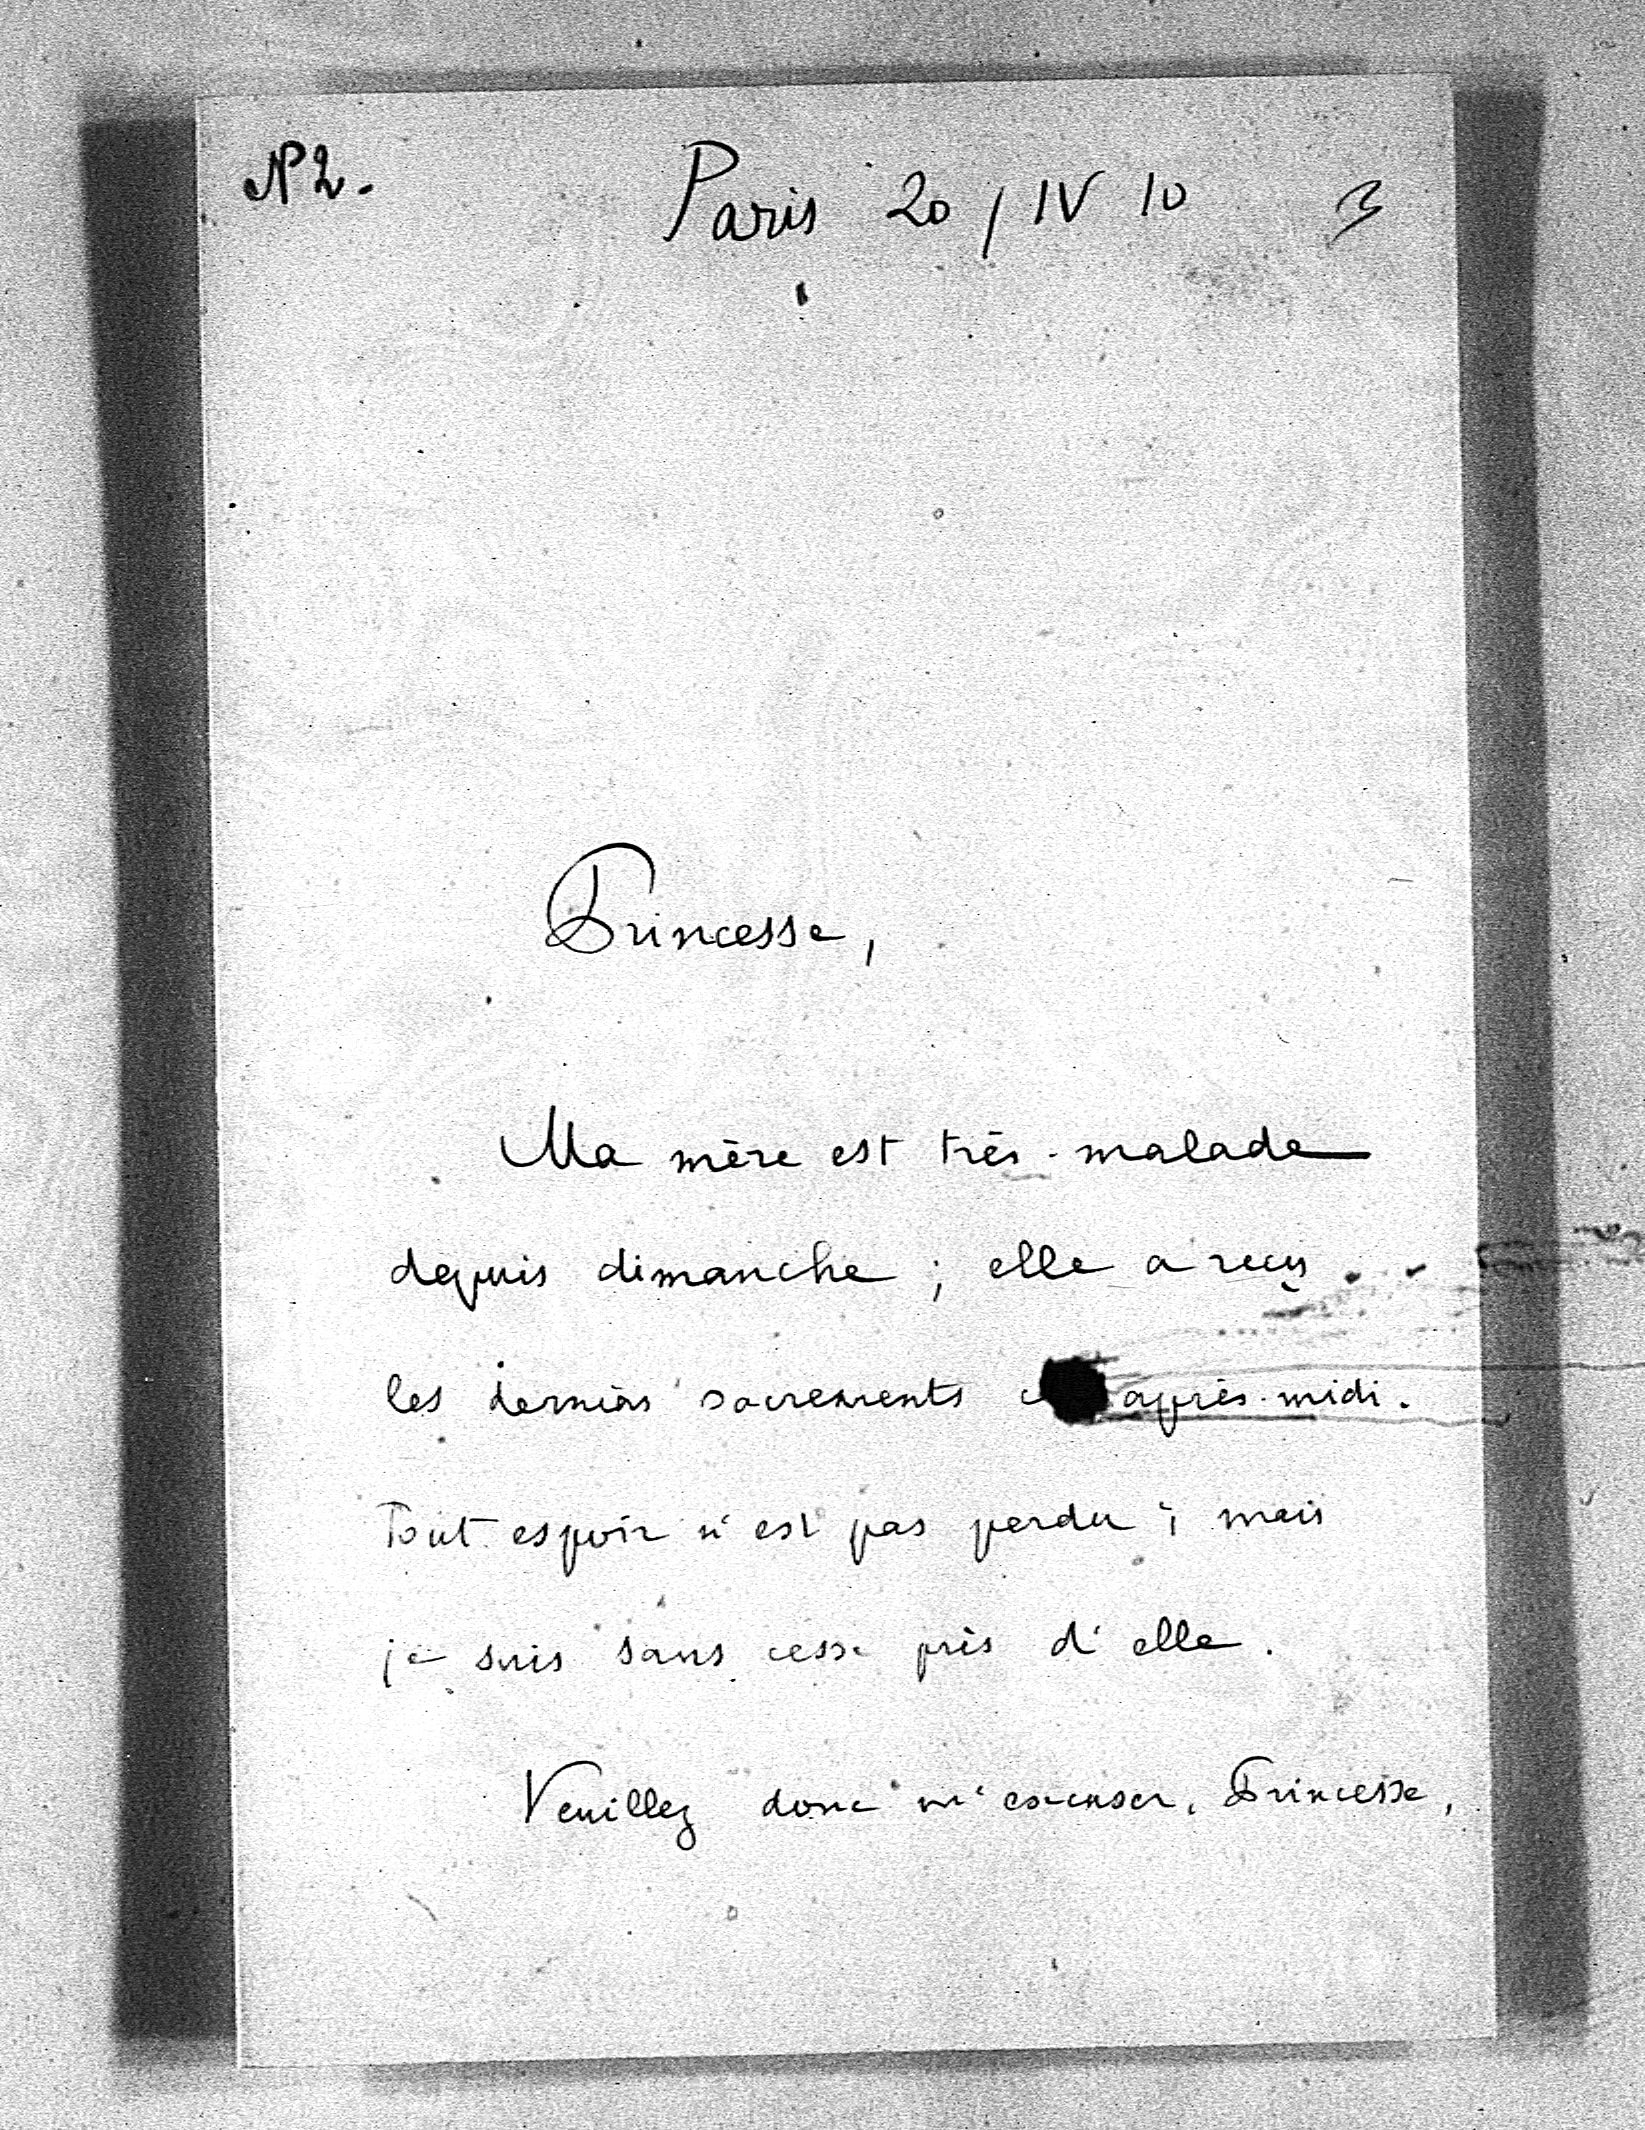 N° 2. Paris 20 / IV 10 3
Princesse,
Ma mère est très-malade
depuis dimanche ; elle a reçu
les derniers sacrements après-midi.
Tout espoir n'est pas perdu ; mais
je suis sans cesse près d'elle.
Veuillez donc m'excuser, Princesse,